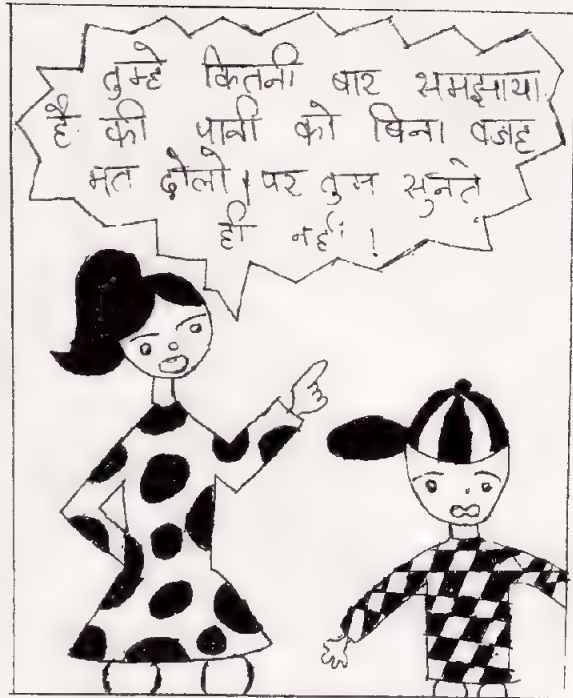 तुम्हे कितनी बार समझाया
है की पानी को बिना वजह
मत ढोलो। पर तुम सुनते
ही नहीं!